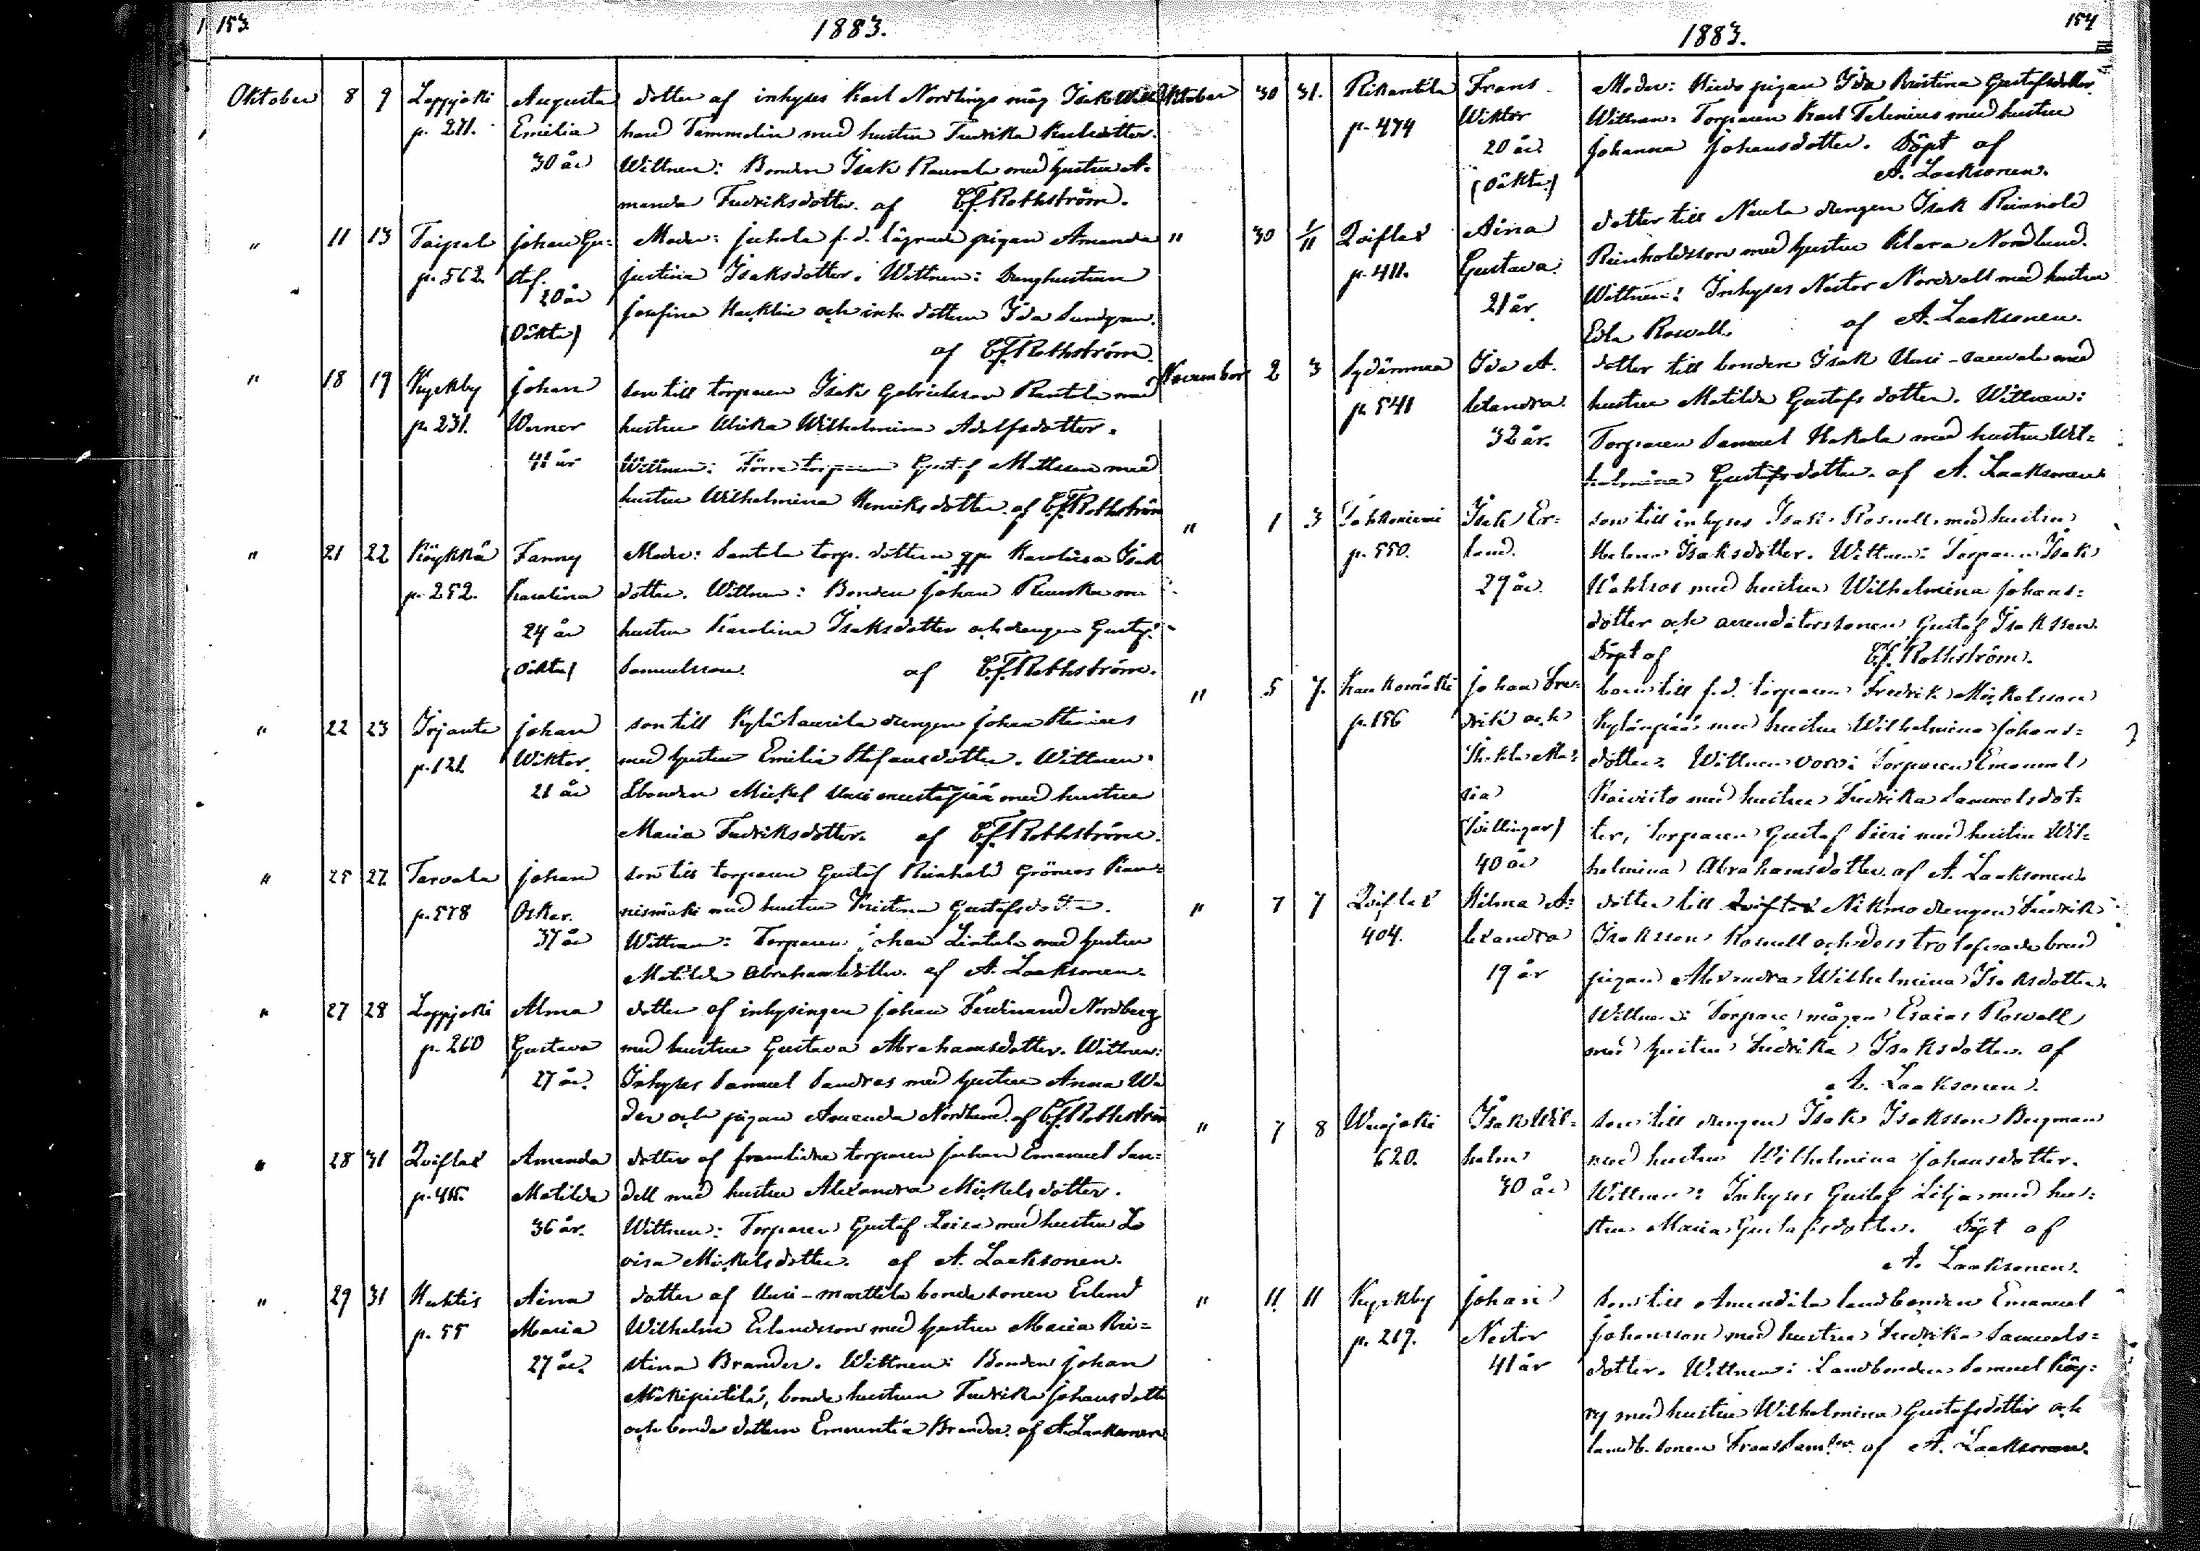 153.
1883.
Oktober 8 9 Lappjoki Augusta dotter af inhyses Karl Nordlings måg Isak Wil
p. 271. Emilia hard Tammelin med hustru Fredrika Karlsdotter.
30 år Wittnen: Bonden Isak Rauvala med hustru A-
manda Fredriksdotter. af C.F. Rothström.
" 11 13 Taipal johan Gu- Moder: juhola f.d. lägrade pigan Amanda
p. 562. staf. justina Isaksdotter. Wittnen: Drenghustrun
20 år josefina Hacklin och inh. dottern Ida Sundgren.
(Oäkta) af C.F. Rothström.
" 18 19 Kyrkby johan son till torparen Isak Gabrielsson Rantila med
p. 231. Werner hustru Ulrika Wilhelmina Adolfsdotter.
41 år Wittnen: Förre torparen Gustaf Mattsson med
hustru Wilhelmina Henriksdotter. af C.F. Rothström
" 21 22 Köykkä Fanny Moder: Santala torp. dottern Karolina Isak
p. 252. Karolina dotter. Wittnen: Bonden johan
24 år hustru Karolina Isaksdotter och drengen Gustaf
(Oäkta) Samuelsson. af C.F. Rothström.
" 22 23 Irjanta johan son till Kylälaurila drengen johan
p. 121. Wiktor. med hustru Emilia Stefansdotter. Wittnen:
21 år Ebonden Mickel med hustru
Maria Fredriksdotter. af C.F. Rothström.
" 25 27 Tarvola johan son till torparen Gustaf Reinhold Grönroos
p. 578 Oskar. med hustru Kristina Gustafsdotter.
37 år Wittnen: Torparen johan Lintala med hustru
Matilda Abrahamsdotter. af A. Laaksonen.
" 27 28 Lappjoki Alma dotter af inhysingen johan Ferdinand Nordberg
p. 260 Gustava med hustru Gustava Abrahamsdotter. Wittnen:
27 år. Inhyses Samuel Sandroos med hustru Anna
och pigan Amanda Nordlund. af C.F. Rothström
" 28 31 Qviflax Amanda dotter af framlidne torparen johan Emanuel San-
Matilda dell med hustru Alexandra Mickelsdotter.
36 år. Wittnen: Torparen Gustaf med hustru Lo
visa Mickelsdotter. af A. Laaksonen.
" 29 31 Huhtis Aina dotter af Uusi-marttila bondesonen Erland
p. 55 Maria Wilhelm Erlandsson med hustru Maria Kri-
27 år. stina Brander. Wittnen: Bonden johan
Mäkipietilä, bondehustrun Fredrika johansdotter
och bondedottern Emerentia Brander. af A. Laaksonen
154
1883.
Oktober 30 31. Pikantila Frans Moder: Hieds pigan Ida Kristina Gustafsdotter.
p. 474 Wiktor Wittnen: Torparen Karl Felenius med hustru
20 år. johanna johansdotter. Döpt af
(Oäkta) A. Laaksonen.
" 30 1/11 Qviflax Aina dotter till Naula drengen Isak Reinhold
p. 411. Gustava Reinholdsson med hustru Klara Nordlund.
21 år. Wittnen: Inhyses Nestor Nordvall med hustru
Edla Rosvall. af A. Laaksonen.
November 2 3 Sydänmaa Ida A. dotter till bonden Isak Uusi-sauvala med
p. 541 lexandra. hustru Matilda Gustafsdotter. Wittnen:
32 år. Torparen Samuel Hakala med hustru Wil-
helmina Gustafsdotter. af A. Laaksonen.
" 1 3 Isak Er- son till inhyses Isak Rosvall med hustru
p. 550. land. Helena Isaksdotter. Wittnen: Torparen Isak
27 år. Wåhlroos med hustru Wilhelmina johans-
dotter och arrendatorssonen Gustaf Isaksson.
Döpt af C.F. Rothström.
" 5 7. Kaukomäki johan Fre- barn till f.d. torparen Fredrik Mickelsson
p. 156 drik och Kylänpää med hustru Wilhelmina johans-
Thekla Ma- dotter. Wittnen voro: Torparen Emanuel
ria Koivisto med hustru Fredrika Samuelsdot-
(Tvillingar) ter, torparen Gustaf Sieri med hustru Wil-
40 år helmina Abrahamsdotter. af A. Laaksonen.
" 7 7 Qviflax Hilma A- dotter till Nikmo drengen Fredrik
404. lexandra Isaksson Rosvall och dess trolofvade brud
19 år pigan Alexandra Wilhelmina Isaksdotter.
Wittnen: Torpare mågen Esaias Rosvall
med hustru Fredrika Isaksdotter. af
A. Laaksonen.
" 7 8 Wuojoki Isak Wil- son till drengen Isak Isaksson Bergman
620. helm med hustru Wilhelmina johansdotter.
30 år Wittnen: Inhyses Gustaf Lilja med hu-
stru Maria Gustafsdotter. Döpt af
A. Laaksonen.
" 11 11 Kyrkby johan son till Amundila landbonden Emanuel
p. 219. Nestor johansson med hustru Fredrika Samuels-
41 år dotter. Wittnen: Landbonden Samuel Köy-
ry med hustru Wilhelmina Gustafsdotter och
landb. sonen Frans Sam.son. af A. Laaksonen.